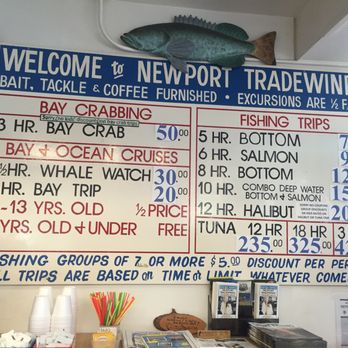 WELCOME to NEWPORT TRADEWIN
BAIT, TACKLE & COFFEE FURNISHED • EXCURSIONS ARE ½ FA
BAY CRABBING
3 HR. BAY CRAB 50.00
BAY & OCEAN CRUISES
½HR. WHALE WATCH 30.00
HR. BAY TRIP 20.00
-13 YRS. OLD ½ PRICE
YRS. OLD & UNDER FREE
FISHING TRIPS
5 HR. BOTTOM
6 HR. SALMON
8 HR. BOTTOM
10 HR. COMBO DEEP WATER BOTTOM & SALMON
12 HR. HALIBUT
TUNA 12 HR 18 HR
235.00 325.00
SHING GROUPS OF 7 OR MORE $5.00 DISCOUNT PER PER
LL TRIPS ARE BASED ON TIME OR LIMIT WHATEVER COME